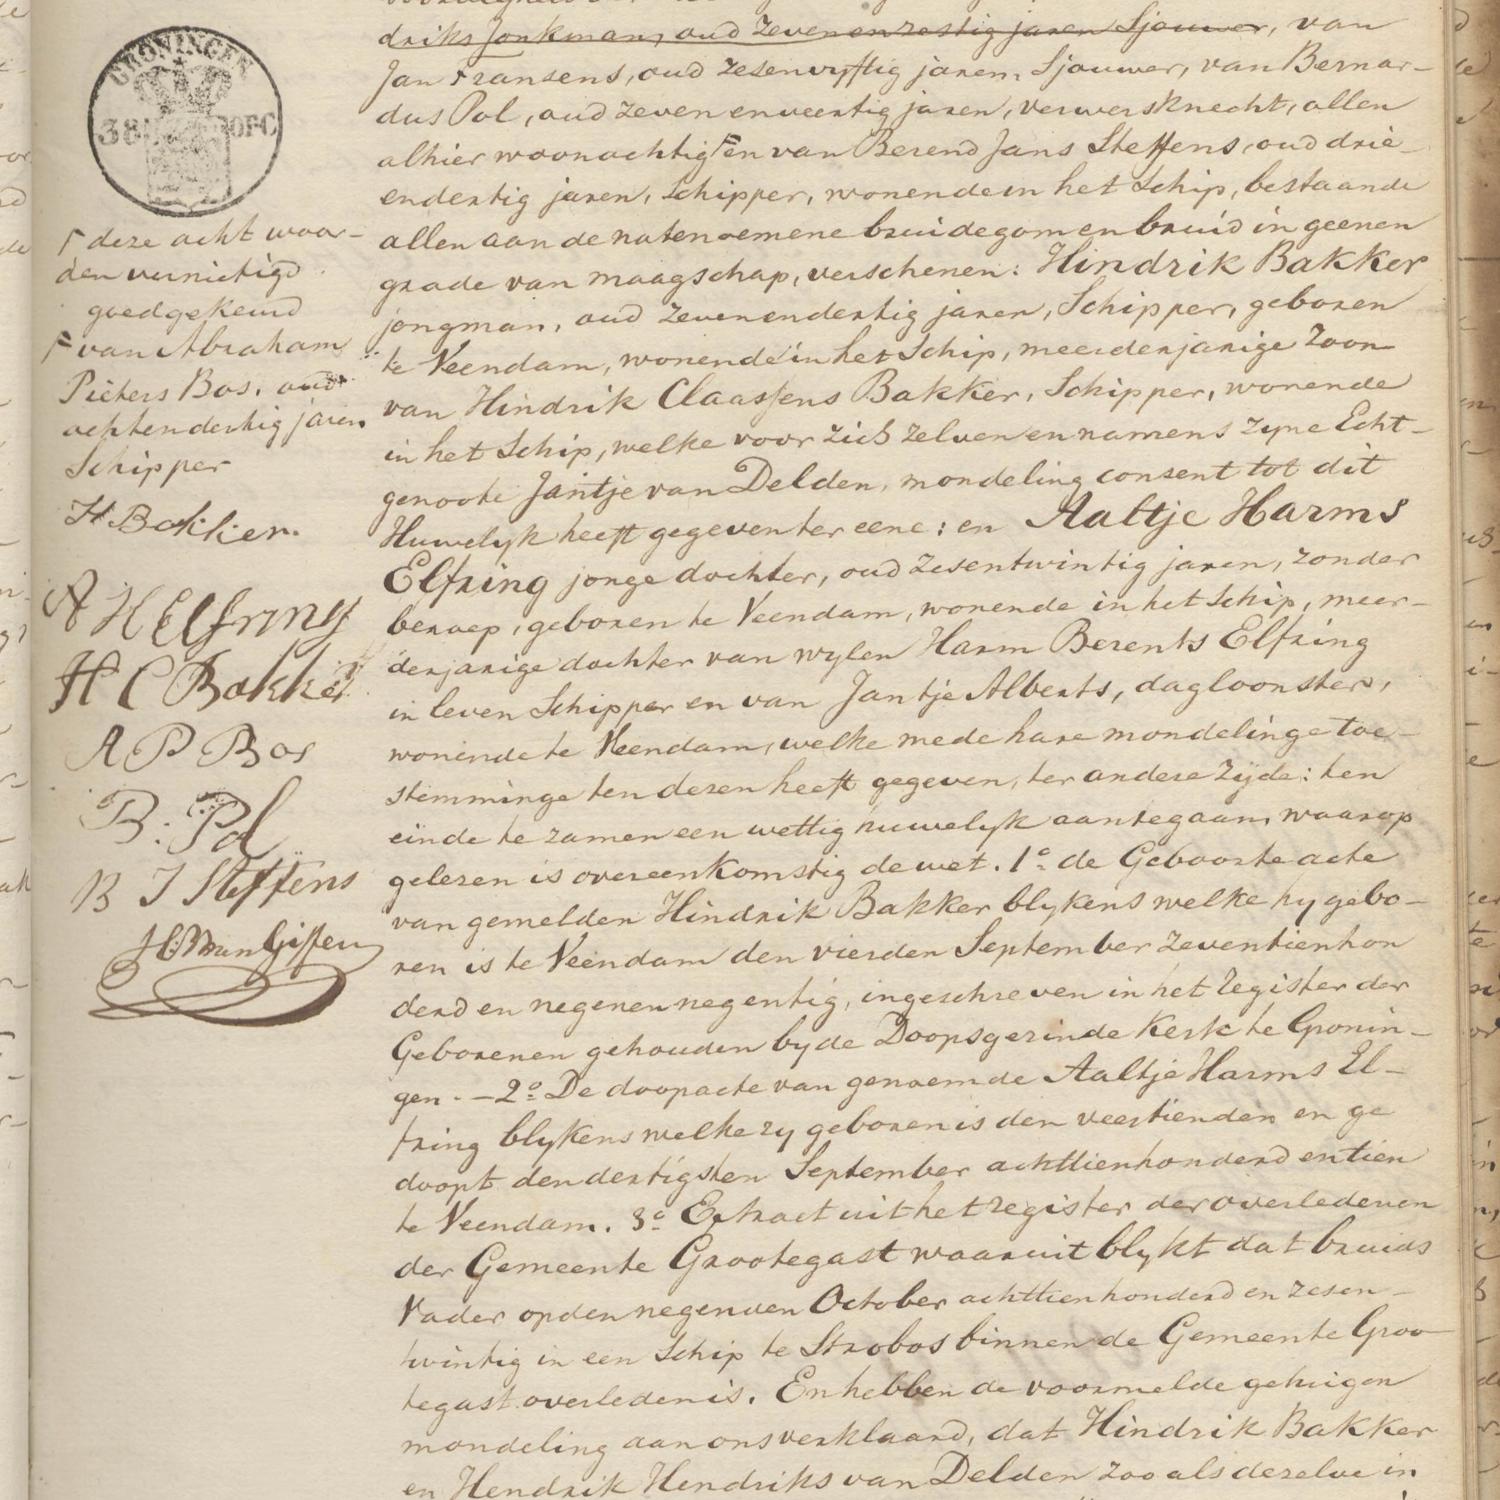 GRONINGEN
38
OPC
deze acht woor-
den vernietigd
goedgekeurd
van Abraham
Pieters Bos, oud
achtendertig jaren,
Schipper
H Bakker.
A H Elfring
H C Bakker
A P Bos
B: Pol
B J Steffens
van Giffen
driks Jonkman, oud zevenenzestig jaren Sjouwer, van
Jan Fransens, oud zesenvyftig jaren, Sjouwer, van Bernar-
dus Pol, oud zeven enveertig jaren, verwersknecht, allen
alhier woonachtig en van Berend Jans Steffens, oud drie-
endertig jaren, Schipper, wonende in het Schip, bestaande
allen aan de natenoemene bruidegom en bruid in geenen
grade van maagschap, verschenen: Hindrik Bakker
jongman, oud zevenendertig jaren, Schipper, geboren
te Veendam, wonende in het Schip, meerderjarige zoon
van Hindrik Claassens Bakker, Schipper, wonende
in het Schip, welke voor zich zelven en namens zyne Echt-
genoote Jantje van Delden, mondeling consent tot dit
Huwelyk heeft gegeven ter eene: en Aaltje Harms
Elfring jonge dochter, oud zesentwintig jaren, zonder
beroep, geboren te Veendam, wonende in het Schip, meer-
derjarige dochter van wylen Harm Berents Elfring
in leven Schipper en van Jantje Alberts, dagloonster,
wonende te Veendam, welke mede hare mondelinge toe-
stemminge ten dezen heeft gegeven, ter andere zijde: ten
einde te zamen een wettig huwelyk aantegaan, waarop
gelezen is overeenkomstig de wet. 1o de Geboorte acte
van gemelden Hindrik Bakker blykens welke hy gebo-
ren is te Veendam den vierden September zeventienhon
derd en negenennegentig, ingeschreven in het register der
Geborenen gehouden by de Doopsgezinde Kerk te Gronin-
gen. - 2o De doopacte van genoemde Aaltje Harms El-
fring blykens welke zy geboren is den veertienden en ge
doopt den dertigsten September achttienhonderd en tien
te Veendam. 3o Extract uit het register der overledenen
der Gemeente Grootegast waaruit blykt dat bruids
Vader op den negenden October achttienhonderd en zesen-
twintig in een Schip te Strobos binnen de Gemeente Groo
tegast overleden is. En hebben de voormelde getuigen
mondeling aan ons verklaard, dat Hindrik Bakker
en Hendrik Hendriks van Delden zoo als dezelve in